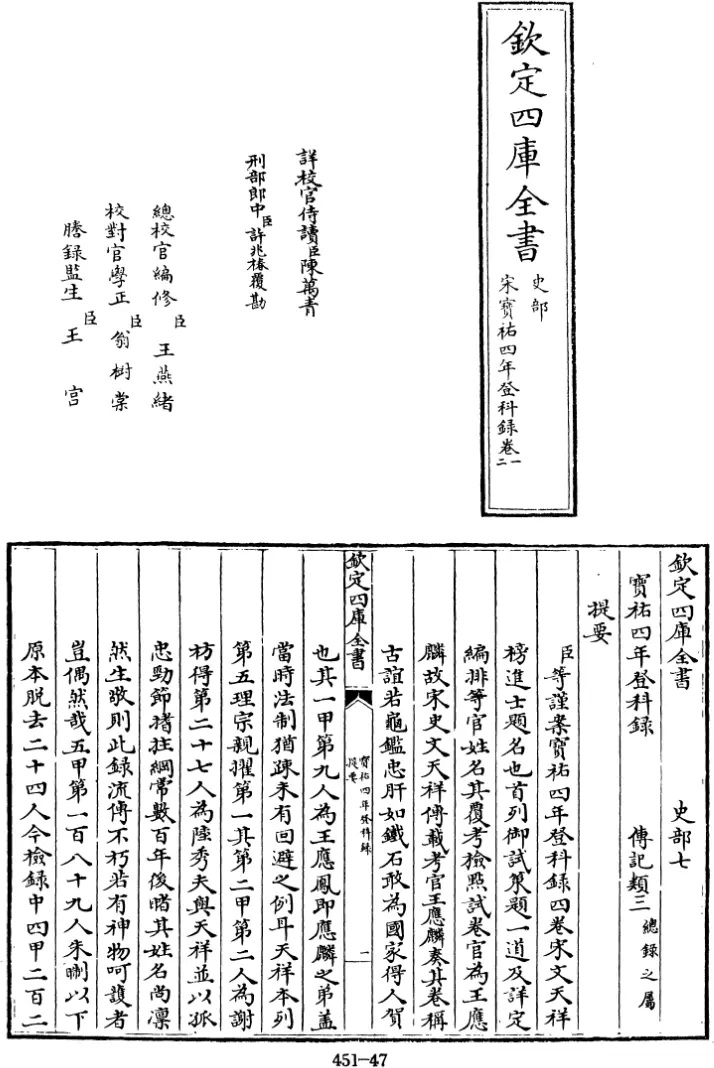 欽定四庫全書
史部
宋寳祐四年登科録卷一二
詳校官侍讀臣陳萬青
刑部郎中臣許兆椿覆勘
總校官編修臣王燕緒
校對官學正臣翁樹棠
謄録監生臣王宫
欽定四庫全書
史部七
寳祐四年登科録
傳記類三總錄之屬
提要
臣等謹案寳祐四年登科録四卷宋文天祥
榜進士題名也首列御試策題一道及詳定
編排等官姓名其覆考檢㸃試卷官為王應
麟故宋史文天祥傳載考官王應麟奏其卷稱
古誼若龜鑑忠肝如鐵石敢為國家得人賀
欽定四庫全書
寳祐四年登科録
提要
一
也其一甲第九人為王應鳳即應麟之弟蓋
當時法制猶疎未有回避之例耳天祥本列
第五理宗親擢第一其第二甲第二人為謝
枋得第二十七人為陸秀夫與天祥並以孤
忠勁節搘拄綱常數百年後睹其姓名尚凛
然生敬則此録流傳不朽若有神物呵護者
豈偶然哉五甲第一百八十九人朱㬇以下
原本脱去二十四人今檢録中四甲二百二
451-47